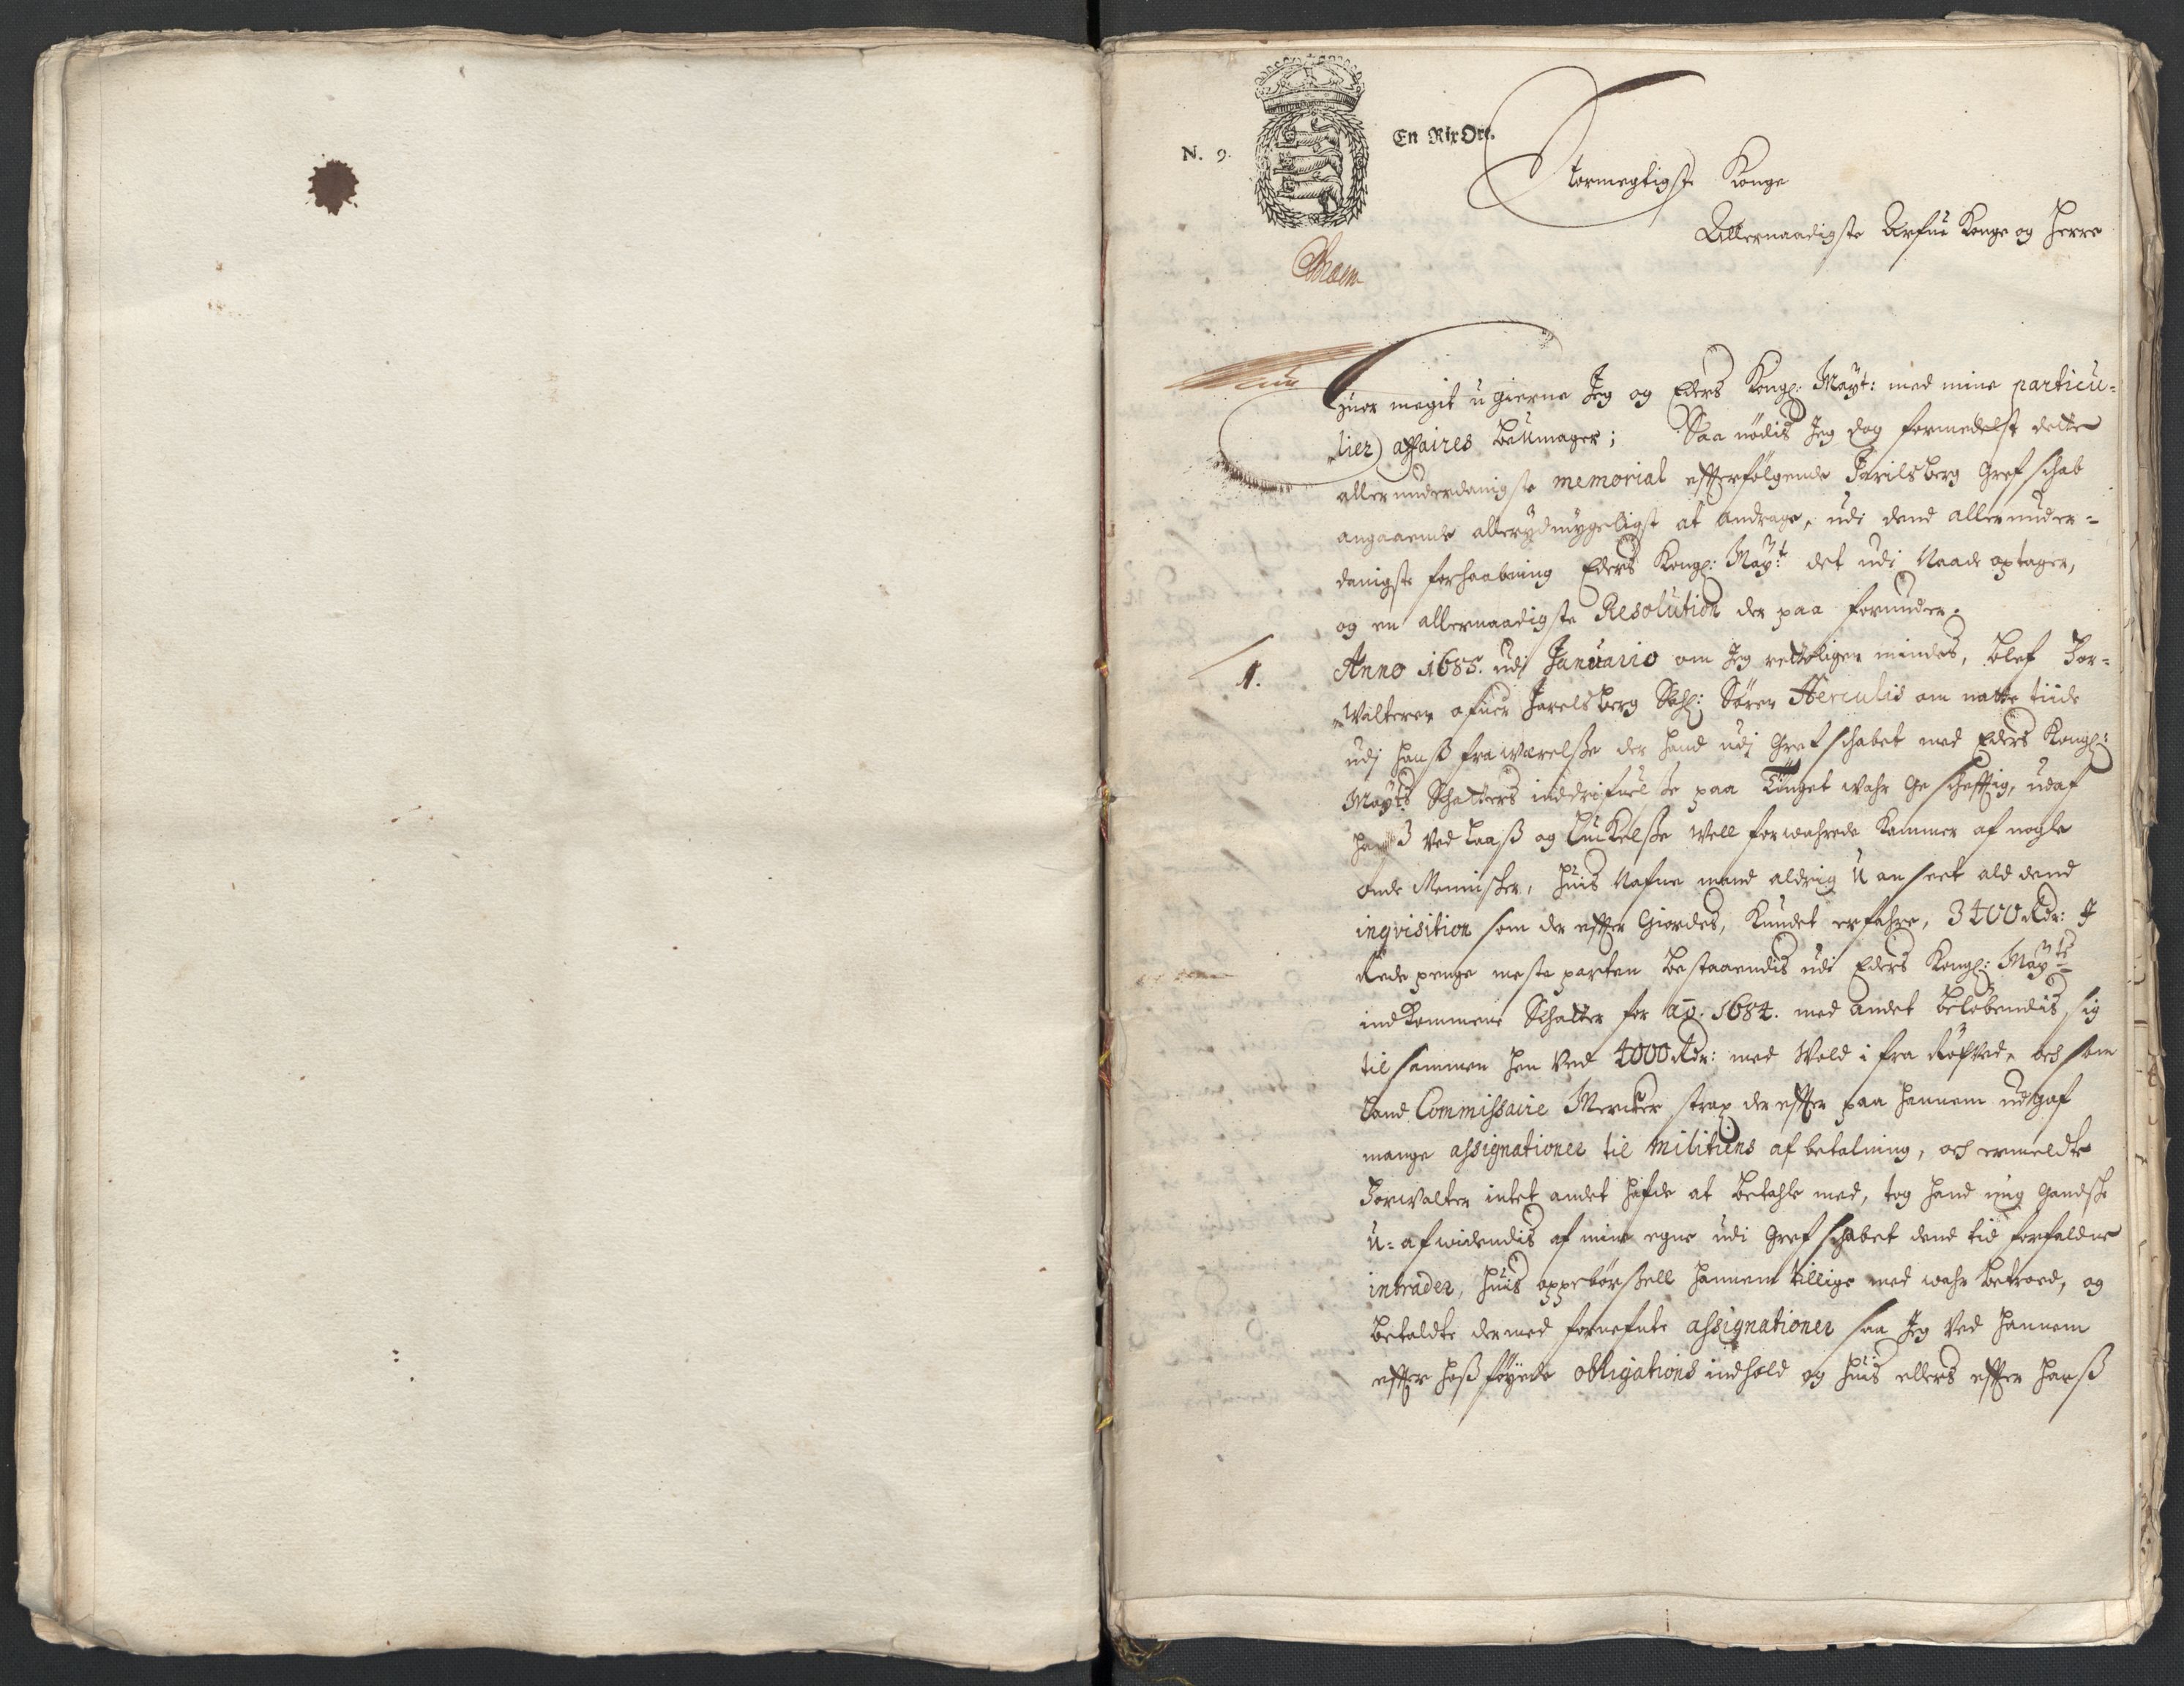 N. 9. En Rix Ort.
Stormegtigste Konge
Allernaadigste Arfue Konge og Herre
Huor megit ugierne Jeg og Eders Kongl: Mayt: med mine particu-
lier affaires bemager; Saa nødis Jeg dog formedelst dette
allerunderdanigste memorial efterfølgende Jarilsberg Grefschab
angaaende allerydmygeligst at andrage, udi dend allerunder-
danigste forhaabning Eders Kongl: Mayt det udi Naade optager,
og en allernaadigste Resolution der paa forunder.
1. Anno 1685. udj Januario om Jeg retteligen mindes, blef For-
walteren ofuer Jarelsberg Sahl: Søren Herculis om natte tiide
udj hanß frawærelße der hand udj Grefschabet med Eders Kongl:
Mayts Schatters inddrifuelße paa Tinget wahr Geschefftig, udaf
hanß ved laaß og luckelße well forwahrede Kammer af nogle
onde Menischer, huis Nafne mand aldrig Uanseet ald dend
inqvisition som der effter Giordes, Kundet erfahre, 3400 Rdr: J
Rede penge meste parten bestaaendis udi Eders Kongl: Mayts
indkommene Schatter for ao. 1684. med andet beløbendis sig
tilsammen hen ved 4000 Rdr: med Wold i fra Røfved, och som
Land Commissaire Mercker strax der effter paa hannem udgaf
mange assignationer til militiens afbetalning, och ermeldte
Forwalter intet andet hafde at betahle med, tog hand mig Gandsche
U-afwidendis af mine egne udi Grefschabet dend tid forfaldne
intrader, huis oppebørßell hannem tillige med wahr betroed, og
betaldte dermed fornefnte assignationer saa Jeg ved hannem
effter hoßføyede obligations indhold og huis ellers effter hanß